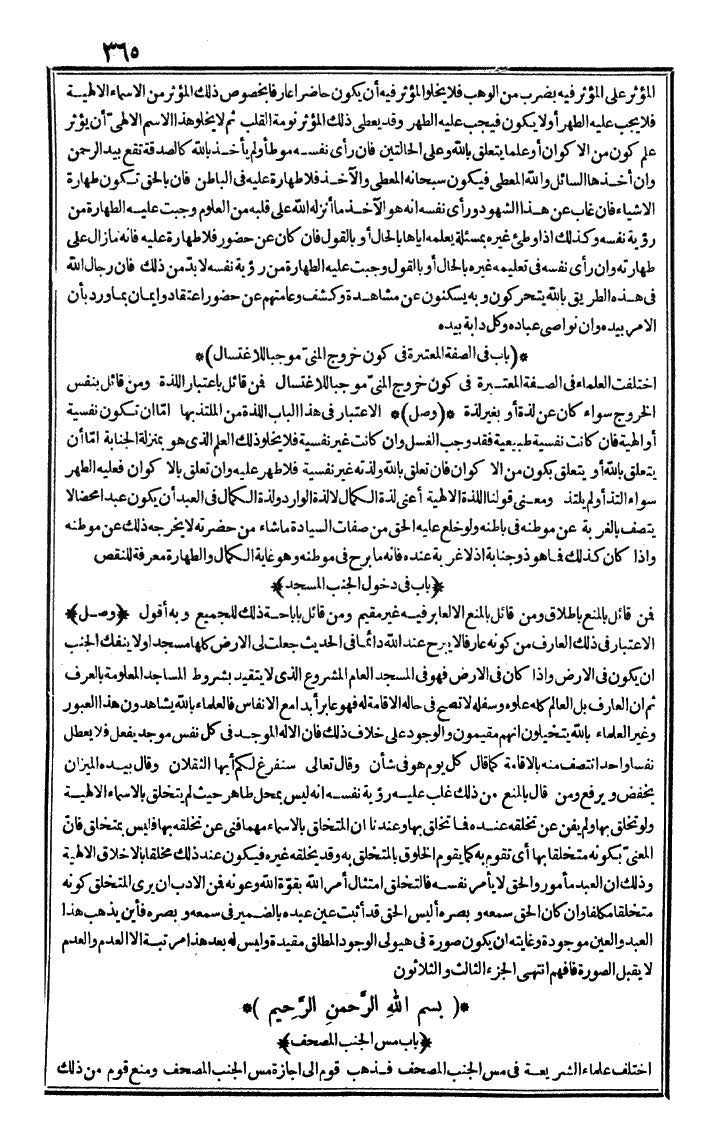 ٣٦٥
المؤثر على المؤثر فيه بضرب من الوهب فلا يخلو المؤثر فيه أن يكون حاضرا عارفا بخصوص ذلك المؤثر من الاسماء الالهية
فلا يجب عليه الطهر أو لا يكون فيجب عليه الطهر وقد يعطى ذلك المؤثر نومة القلب ثم لا يخلو هذا الاسم الالهى أن يؤثر
علم كون من الا كوان أو علما يتعلق بالله وعلى الحالتين فان رأى نفسه موطأ ولم يأخذ بالله كالصدقة تقع بيد الرحمن
وان أخذها السائل والله المعطى فيكون سبحانه المعطى والآخذ فلا طهارة عليه فى الباطن فان بالحق تكون طهارة
الاشياء فان غاب عن هذا الشهود ورأى نفسه انه هو الآخذ ما أنزله الله على قلبه من العلوم وجبت عليه الطهارة من
رؤية نفسه وكذلك اذا وطئ غيره بمسئلة يعلمه اياها بالحال أو بالقول فان كان عن حضور فلا طهارة عليه فانه ما زال على
طهارته وان رأى نفسه فى تعليمه غيره بالحال أو بالقول وجبت عليه الطهارة من رؤية نفسه لا بد من ذلك فان رجال الله
فى هذه الطريق بالله يتحركون وبه يسكنون عن مشاهدة وكشف وعامتهم عن حضور اعتقاد وايمان بما ورد بأن
الامر بيده وان نواصى عباده وكل دابة بيده
*(باب فى الصفة المعتبرة فى كون خروج المنىّ موجبا للاغتسال)*
اختلفت العلماء فى الصفة المعتبرة فى كون خروج المنىّ موجبا للاغتسال فمن قائل باعتبار اللذة ومن قائل بنفس
الخروج سواء كان عن لذة أو بغير لذة *(وصل)* الاعتبار فى هذا الباب اللذة من الملتذ بها اما ان تكون نفسية
أو الهية فان كانت نفسية طبيعية فقد وجب الغسل وان كانت غير نفسية فلا يخلو ذلك العلم الذى هو بمنزلة الجنابة امّا أن
يتعلق بالله أو يتعلق بكون من الا كوان فان تعلق بالله ولذته غير نفسية فلا طهر عليه وان تعلق بالا كوان فعليه الطهر
سواء التذ أو لم يلتذ ومعنى قولنا اللذة الالهية أعنى لذة الكمال لا لذة الوارد ولذة الكمال فى العبد أن يكون عبدا محضا لا
يتصف بالغربة عن موطنه فى باطنه ولو خلع عليه الحق من صفات السيادة ما شاء من حضرته لا يخرجه ذلك عن موطنه
واذا كان كذلك فما هو ذو جنابة اذ لا غربة عنده فانه ما برح فى موطنه وهو غاية الكمال والطهارة معرفة للنقص
*(باب فى دخول الجنب المسجد)*
فمن قائل بالمنع باطلاق ومن قائل بالمنع الا لعابر فيه غير مقيم ومن قائل باباحة ذلك للجميع وبه أقول *(وصل)*
الاعتبار فى ذلك العارف من كونه عارفا لا يبرح عند الله دائما فى الحديث جعلت لى الارض كلها مسجدا ولا ينفك الجنب
ان يكون فى الارض واذا كان فى الارض فهو فى المسجد العام المشروع الذى لا يتقيد بشروط المساجد المعلومة بالعرف
ثم ان العارف بل العالم كله علوه وسفله لا تصح فى حاله الاقامة له فهو عابر أبدا مع الانفاس فالعلماء بالله يشاهدون هذا العبور
وغير العلماء بالله يتخيلون انهم مقيمون والوجود على خلاف ذلك فان الاله الموجد فى كل نفس موجد يفعل فلا يعطل
نفسا واحدا تتصف منه بالاقامة كما قال كل يوم هو فى شأن وقال تعالى سنفرغ لكم أيها الثقلان وقال بيده الميزان
يخفض ويرفع ومن قال بالمنع من ذلك غلب عليه رؤية نفسه انه ليس بمحل طاهر حيث لم يتخلق بالاسماء الالهية
ولو تخلق بها ولم يفن عن تخلقه عنده فما تخلق بها وعندنا ان المتخلق بالاسماء مهما فنى عن تخلقه بها فليس بمتخلق فانّ
المعنىّ بكونه متخلقا بها أى تقوم به كما يقوم الخلوق بالمتخلق به وقد يخلقه غيره فيكون عند ذلك مخلقا بالاخلاق الالهية
وذلك ان العبد مأمور والحق لا يأمر نفسه فالتخلق امتثال أمر الله بقوّة الله وعونه فمن الادب ان يرى المتخلق كونه
متخلقا مكلفا وان كان الحق سمعه وبصره أليس الحق قد أثبت عين عبده بالضمير فى سمعه وبصره فأين يذهب هذا
العبد والعين موجودة وغايته ان يكون صورة فى هيولى الوجود المطلق مقيدة وليس له بعد هذا مرتبة الا العدم والعدم
لا يقبل الصورة فافهم انتهى الجزء الثالث والثلاثون
*( بسم الله الرَّحمنِ الرَّحِيم )*
*(باب مس الجنب المصحف)*
اختلف علماء الشريعة فى مس الجنب المصحف فذهب قوم الى اجازة مس الجنب المصحف ومنع قوم من ذلك